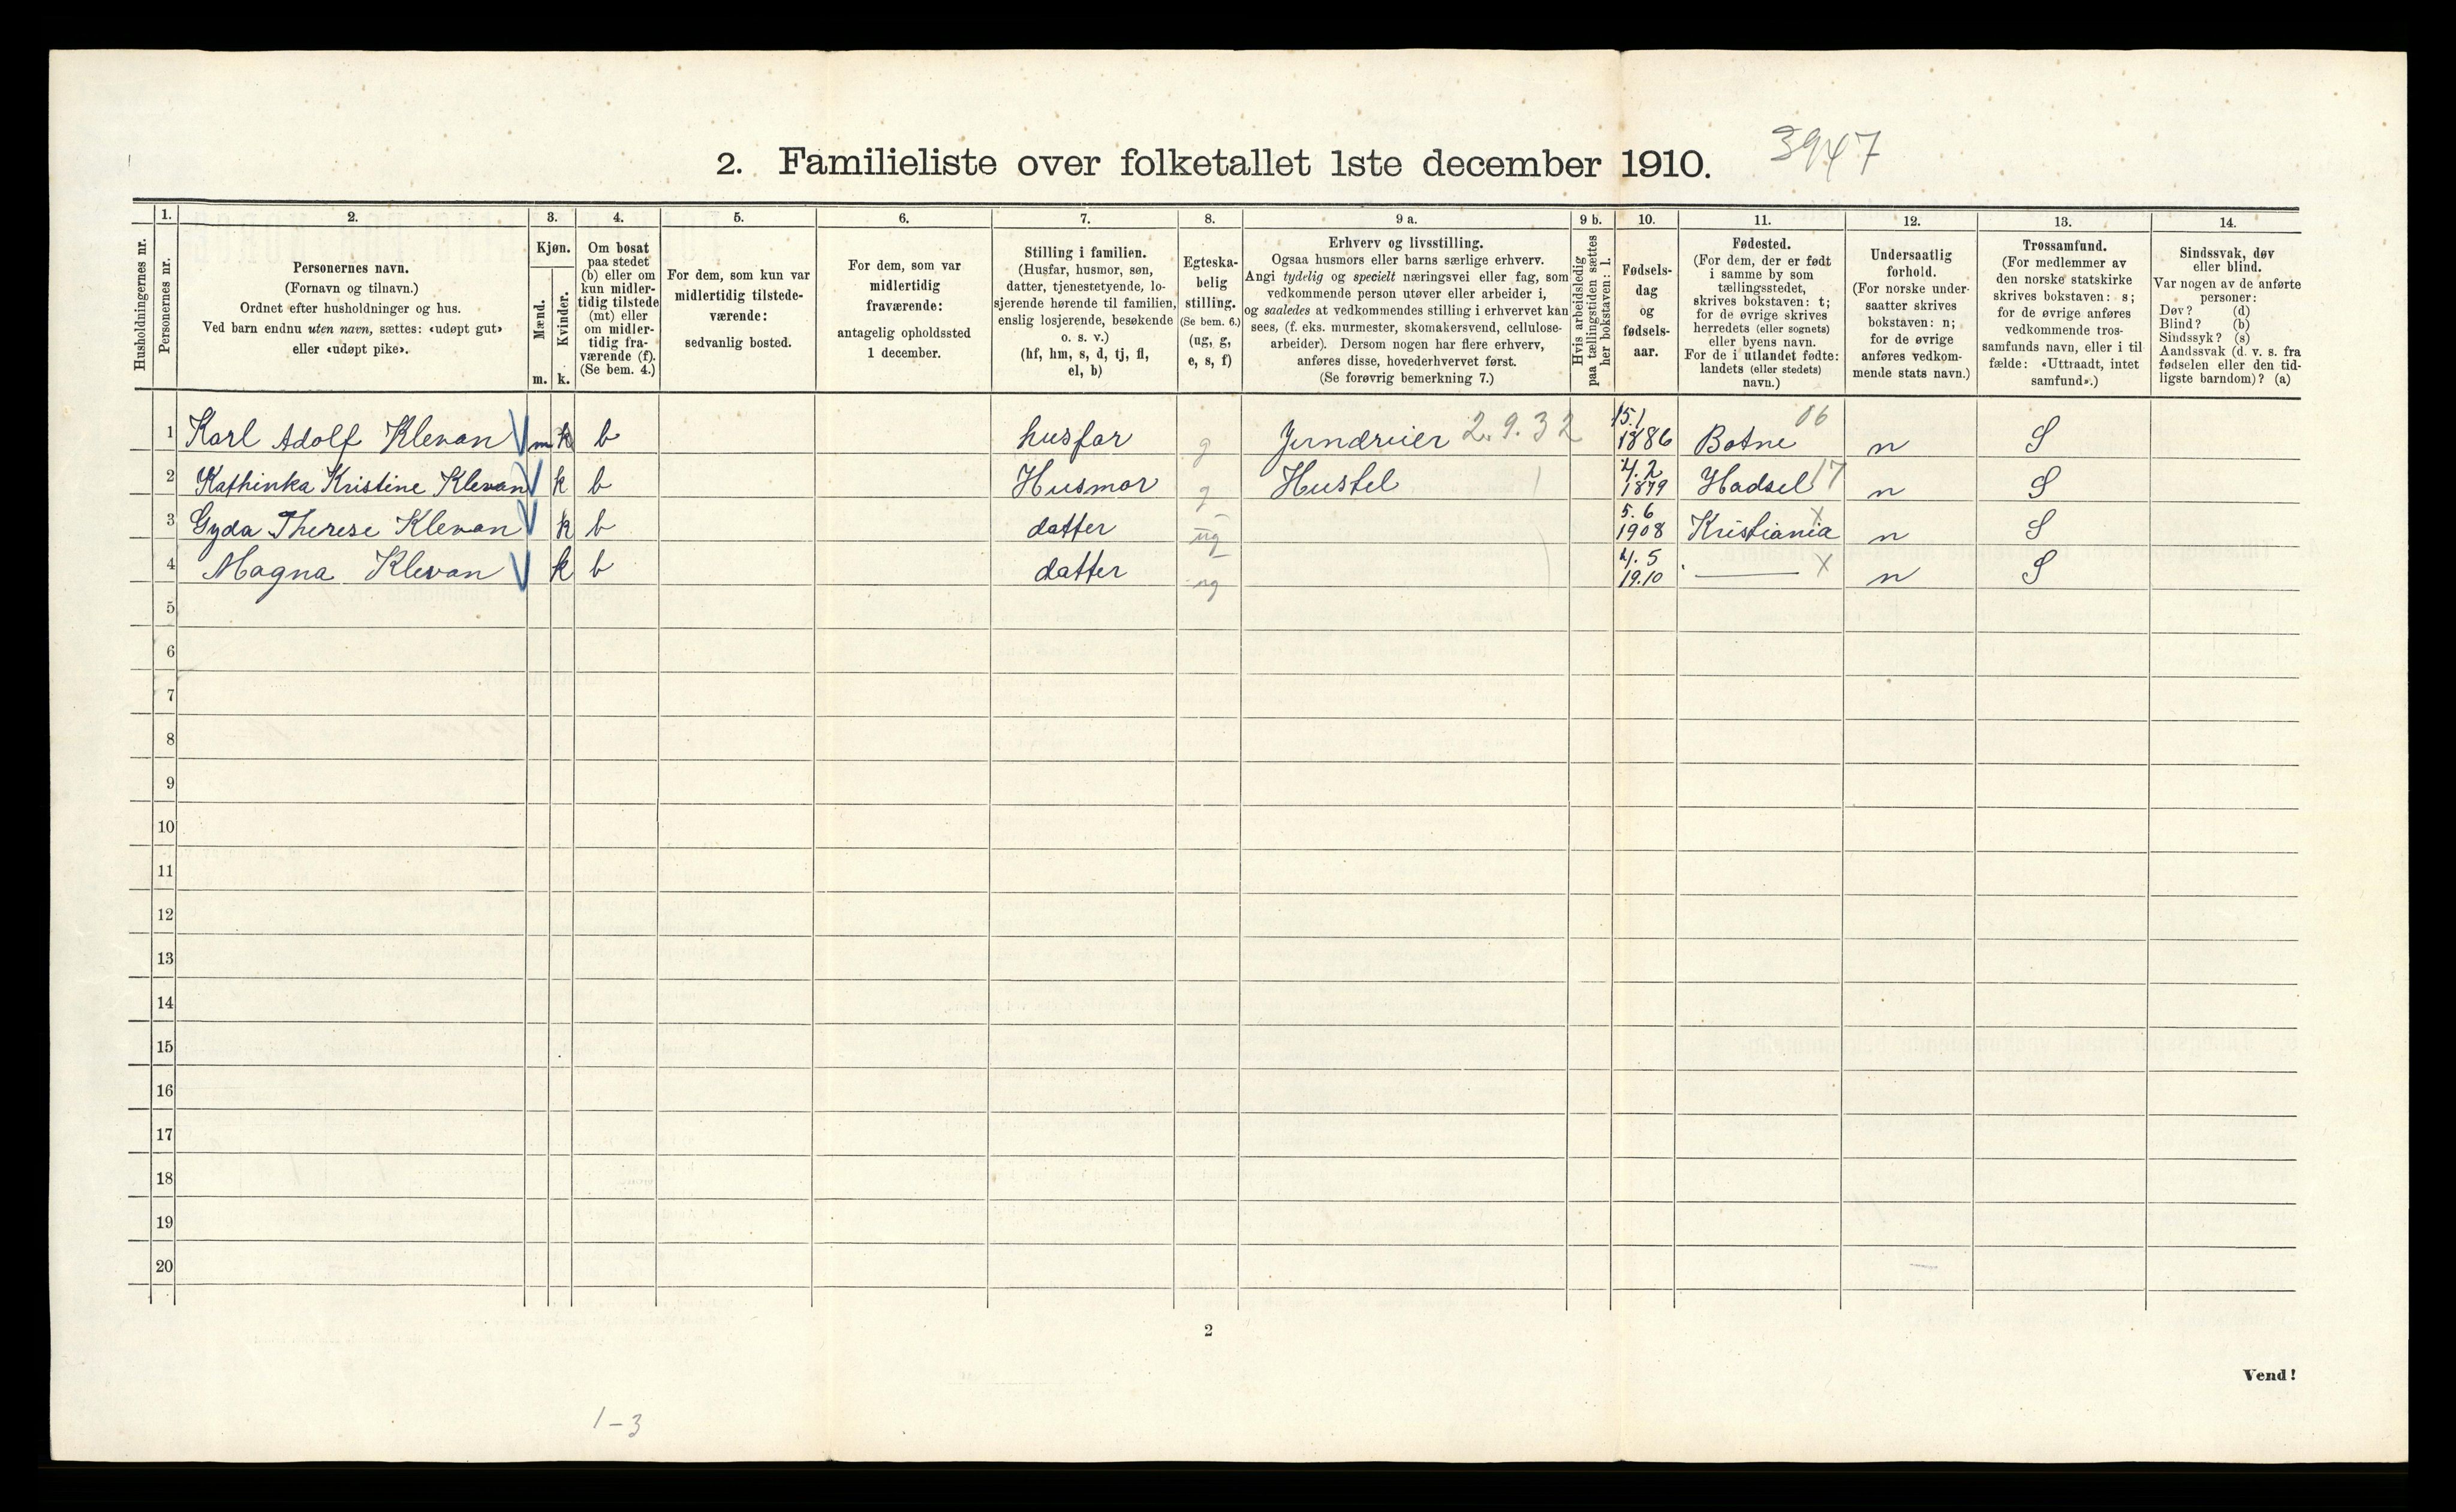 2. Familieliste over folketallet 1ste december 1910. 3947
Husholdningernes nr.
1.
Personernes nr.
2.
Personernes navn.
(Fornavn og tilnavn.)
Ordnet efter husholdninger og hus.
Ved barn endnu uten navn, sættes: «udøpt gut»
eller «udøpt pike».
3.
Kjøn.
Mænd.
Kvinder.
m. k.
4.
Om bosat
paa stedet
(b) eller om
kun midler-
tidig tilstede
(mt) eller
om midler-
tidig fra-
værende (f).
(Se bem. 4.)
5.
For dem, som kun var
midlertidig tilstede-
værende:
sedvanlig bosted.
6.
For dem, som var
midlertidig
fraværende:
antagelig opholdssted
1 december.
7.
Stilling i familien.
(Husfar, husmor, søn,
datter, tjenestetyende, lo-
sjerende hørende til familien,
enslig losjerende, besøkende
o. s. v.)
(hf, hm, s, d, tj, fl,
el, b)
8.
Egteska-
belig
stilling.
(Se bem. 6.)
(ug, g,
e, s, f)
9 a.
Erhverv og livsstilling.
Ogsaa husmors eller barns særlige erhverv.
Angi tydelig og specielt næringsvei eller fag, som
vedkommende person utøver eller arbeider i,
og saaledes at vedkommendes stilling i erhvervet kan
sees, (f. eks. murmester, skomakersvend, cellulose-
arbeider). Dersom nogen har flere erhverv,
anføres disse, hovederhvervet først.
(Se forøvrig bemerkning 7.)
9 b.
Hvis arbeidsledig
paa tællingstiden sættes
her bokstaven: l.
10.
Fødsels-
dag
og
fødsels-
aar.
11.
Fødested.
(For dem, der er født
i samme by som
tællingsstedet,
skrives bokstaven: t;
for de øvrige skrives
herredets (eller sognets)
eller byens navn.
For de i utlandet fødte:
landets (eller stedets)
navn.)
12.
Undersaatlig
forhold.
(For norske under-
saatter skrives
bokstaven: n;
for de øvrige
anføres vedkom-
mende stats navn.)
13.
Trossamfund.
(For medlemmer av
den norske statskirke
skrives bokstaven: s;
for de øvrige anføres
vedkommende tros-
samfunds navn, eller i til
fælde: «Uttraadt, intet
samfund».)
14.
Sindssvak, døv
eller blind.
Var nogen av de anførte
personer:
Døv? (d)
Blind? (b)
Sindssyk? (s)
Aandssvak (d. v. s. fra
fødselen eller den tid-
ligste barndom)? (a)
1 Karl Adolf Klevan m k b husfar g Jerndreier 2.9.32 15.1 1886 Botne 06 n S
2 Kathinka Kristine Klevan k b Husmor g Hustel 4.2 1879 Hadsel 17 n S
3 Gyda Therese Klevan k b datter ug 5.6 1908 Kristiania x n S
4 Magna Klevan k b datter ug 4.5 1910 — x n S
5
6
7
8
9
10
11
12
13
14
15
16
17
18
19
20
2
Vend!
1-3